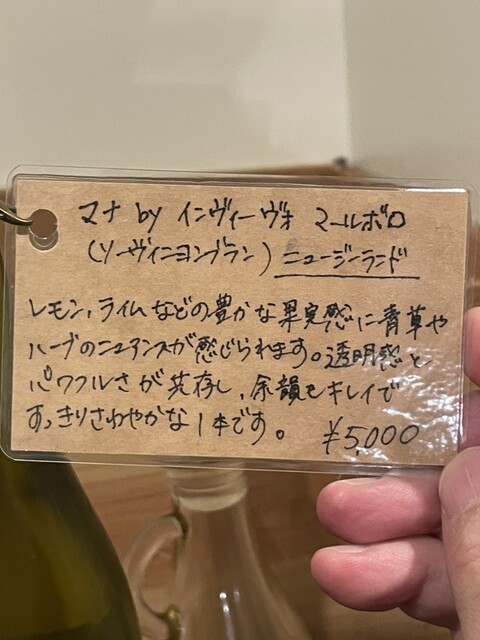 マナ by インヴィーヴォ マールボロ
(ソーヴィニヨンブラン) ニュージーランド
レモン、ライムなどの豊かな果実感に青草や
ハーブのニュアンスが感じられます。透明感と
パワフルさが共存し、余韻もキレイで
すっきりさわやかな1本です。 ¥5,000